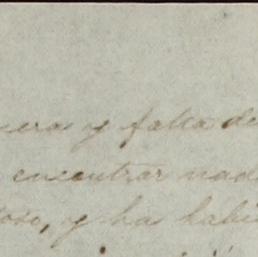 y falta de
encontrar nad
toso, y ha habi